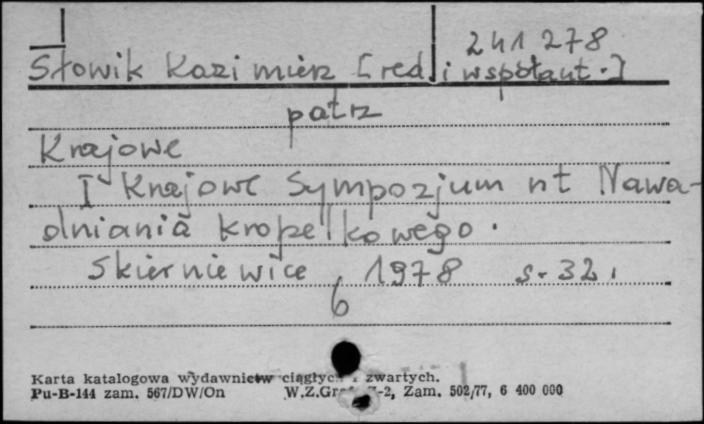 241278
Słowik Kazimierz [red i współaut.]
patrz
Krajowe
I Krajowe Sympozjum nt Nawa-
dniania kropelkowego.
Skierniewice 1978 s. 32.
6
Karta katalogowa wydawnictw ciągłych i zwartych.
Pu-B-144 zam. 567/DW/On W.Z.Graf. Z-2, Zam. 502/77, 6 400 000